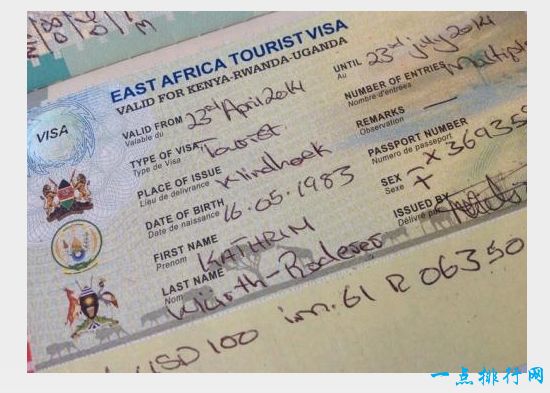 EAST AFRICA TOURIST VISA
VALID FOR KENYA-RWANDA-UGANDA
VISA
VALID FROM 23rd April 2014
Valable du
UNTIL 23rd July 2014
Au
TYPE OF VISA Tourist
Type de Visa
NUMBER OF ENTRIES Multiple
Nombre d'entrées
PLACE OF ISSUE Windhoek
Lieu de delivrance
REMARKS —
Observation
DATE OF BIRTH 16.05.1983
Date de naissance
PASSPORT NUMBER
Numero de passeport
FIRST NAME KATHRIN
Prenom
SEX F
Sexe
LAST NAME
Nom
ISSUED BY
Délivré par
USD 100 R 06350
一点排行网